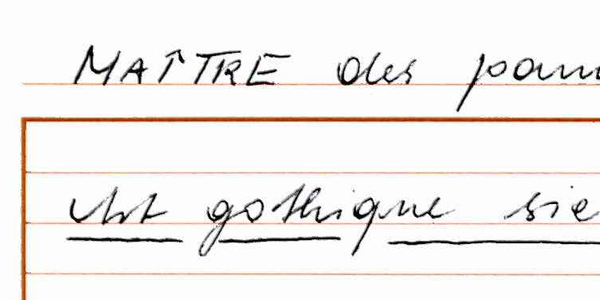 MAÎTRE des
Art gothique sie